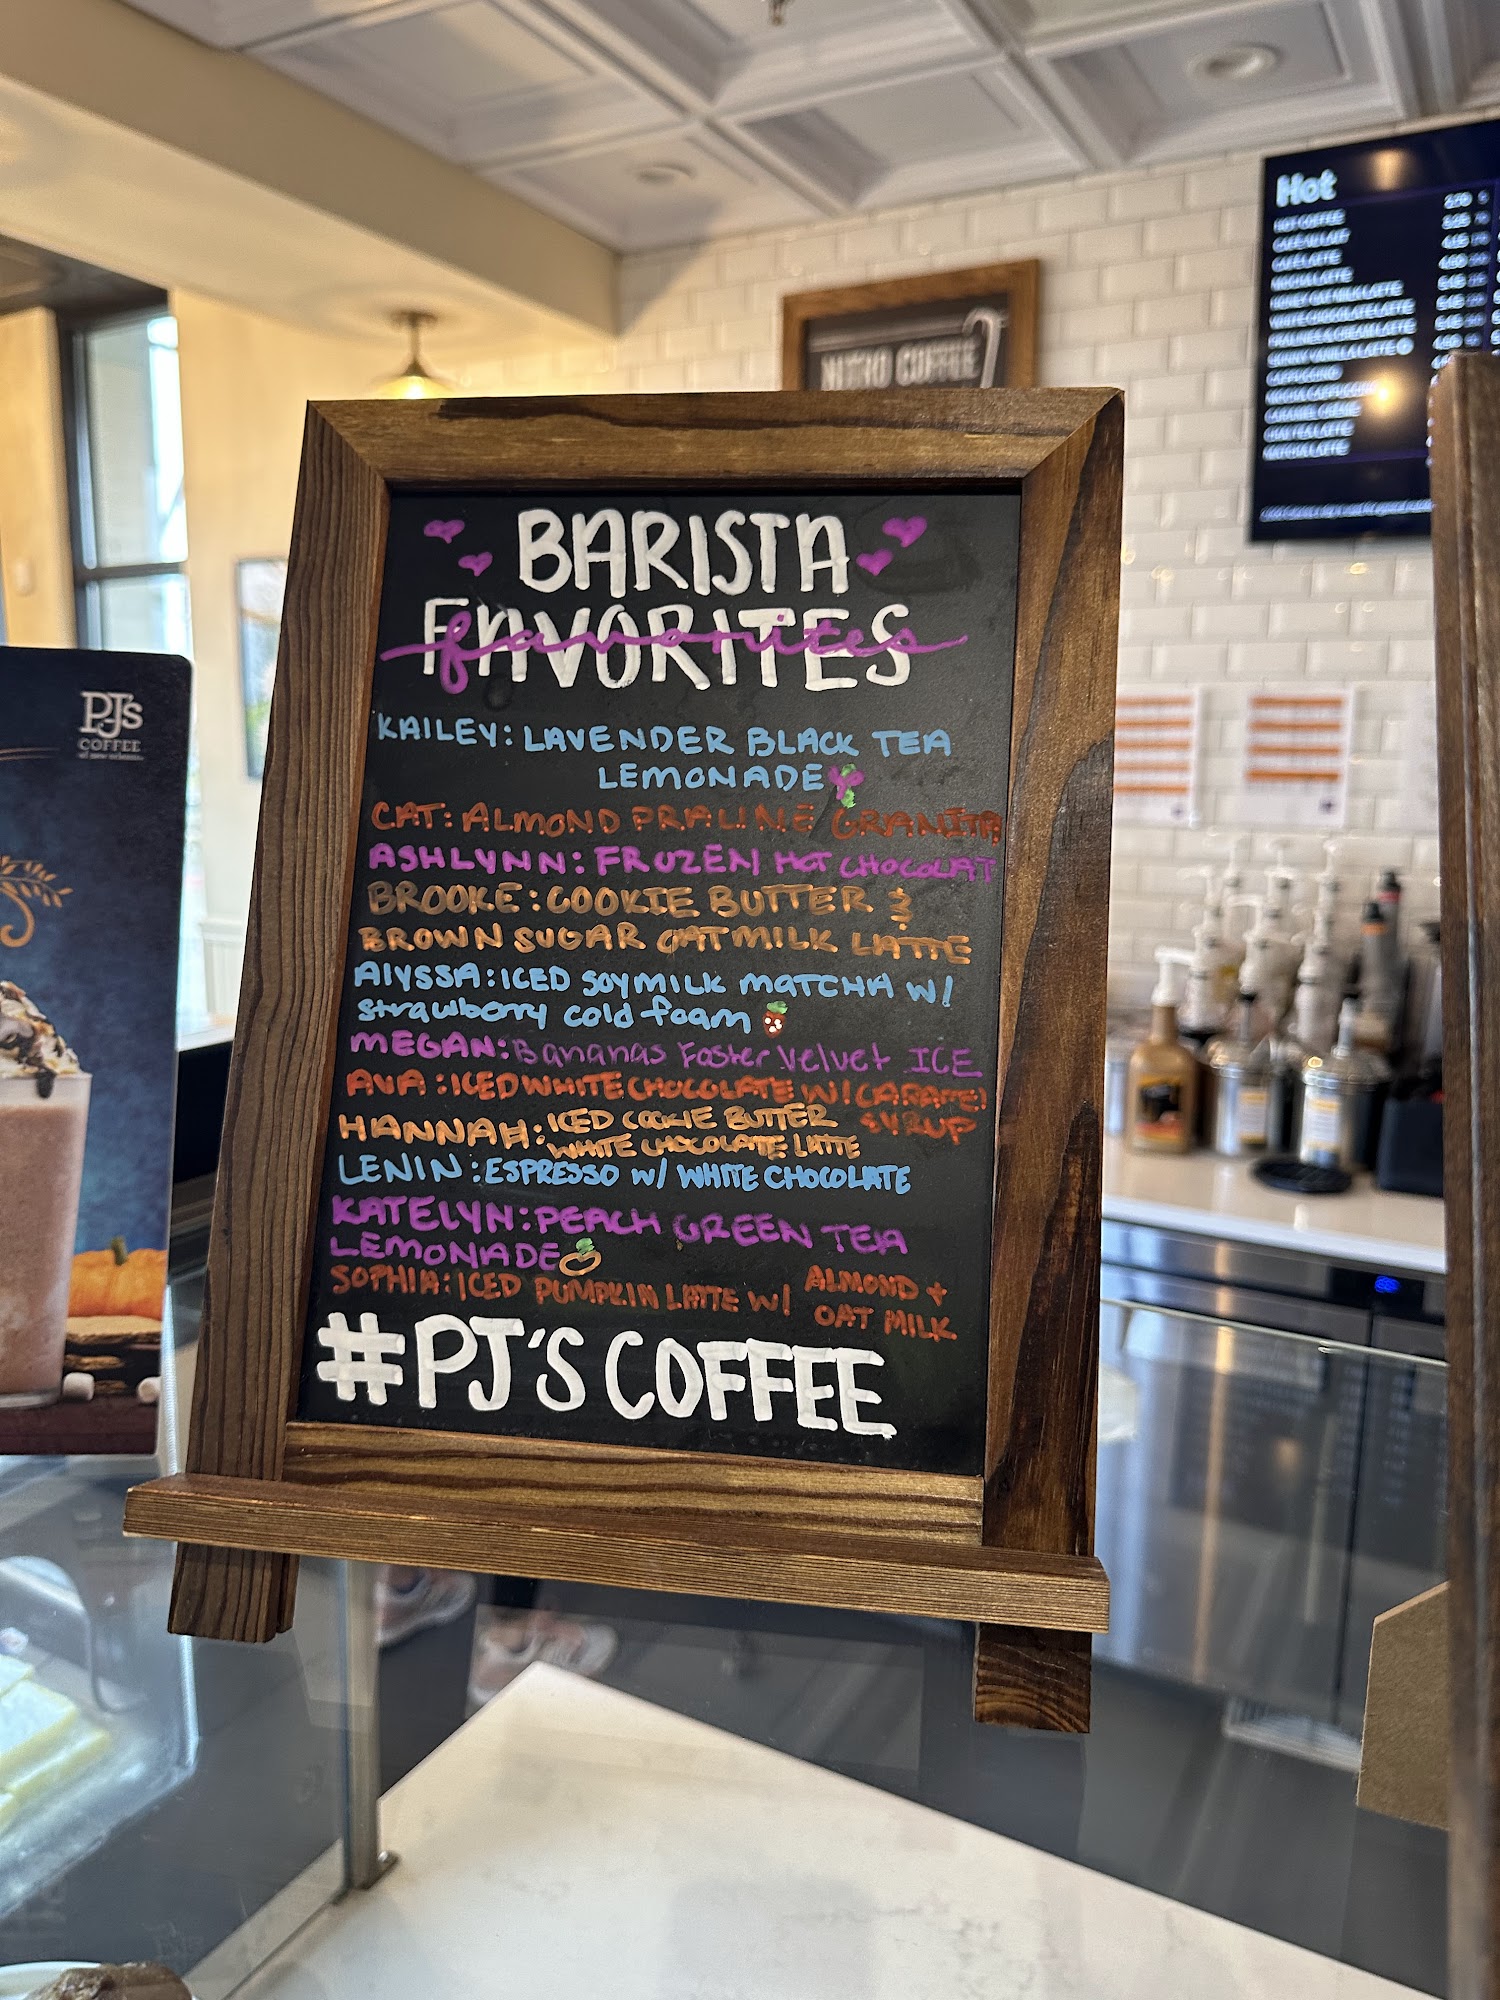 Hot
HOT COFFEE
CAFÉ AU LAIT
CAFÉ LATTE
MOCHA LATTE
HONEY OAT MILK LATTE
WHITE CHOCOLATE LATTE
PRALINE & CREAM LATTE
SKINNY VANILLA LATTE
CAPPUCCINO
MOCHA CAPPUCCINO
CARAMEL CREME
CHAI TEA LATTE
MATCHA LATTE
NITRO COFFEE
PJ's
COFFEE
of new orleans
BARISTA
FAVORITES
favorites
KAILEY: LAVENDER BLACK TEA
LEMONADE
CAT: ALMOND PRALINE GRANITA
ASHLYNN: FROZEN HOT CHOCOLAT
BROOKE: COOKIE BUTTER &
BROWN SUGAR OATMILK LATTE
AlYSSA: ICED SOYMILK MATCHA W/
strawberry cold foam
MEGAN: Bananas Foster Velvet ICE
AVA: ICED WHITE CHOCOLATE W/ CARAMEL
SYRUP
HANNAH: ICED COOKIE BUTTER
WHITE CHOCOLATE LATTE
LENIN: ESPRESSO W/ WHITE CHOCOLATE
KATELYN: PEACH GREEN TEA
LEMONADE
SOPHIA: ICED PUMPKIN LATTE W/ ALMOND +
OAT MILK
#PJ'S COFFEE